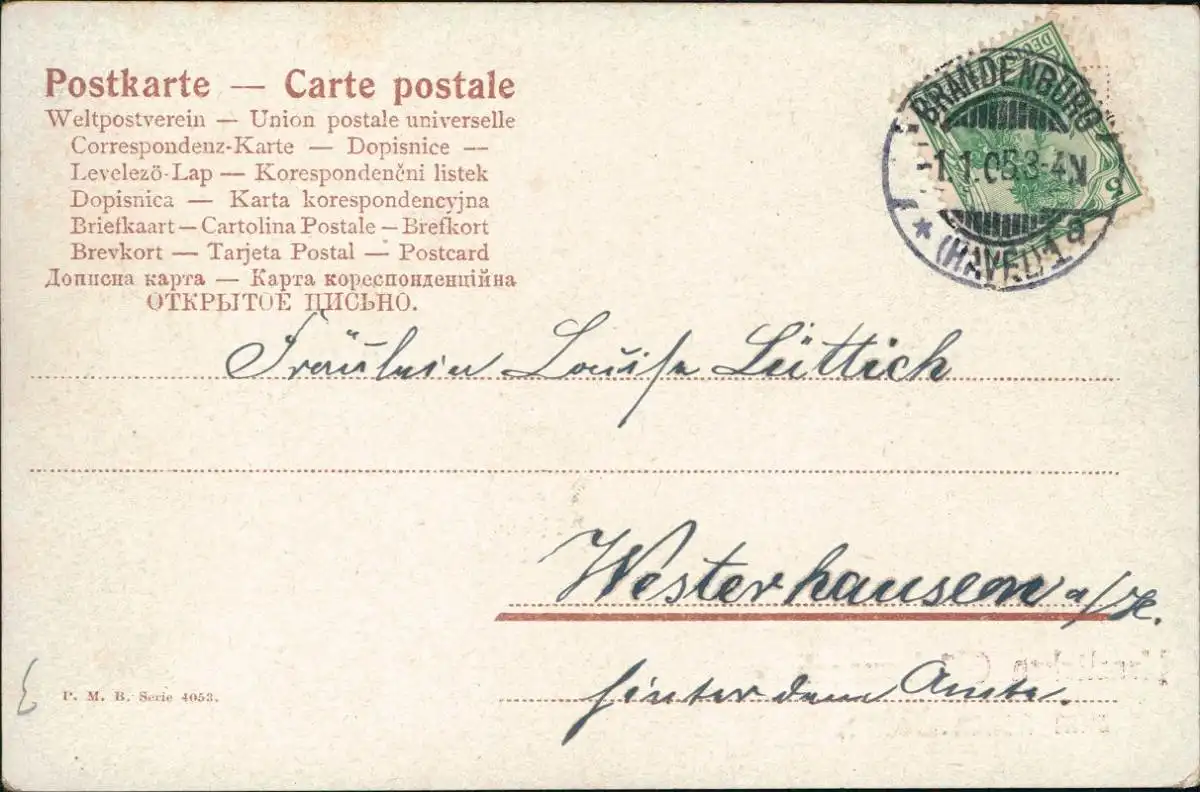 Postkarte — Carte postale
Weltpostverein — Union postale universelle
Correspondenz-Karte — Dopisnice —
Levelező-Lap — Korespondenčni listek
Dopisnica — Karta korespondencyjna
Briefkaart — Cartolina Postale — Brefkort
Brevkort — Tarjeta Postal — Postcard
Дописна карта — Карта кореспонденційна
ОТКРЫТОЕ ПИСЬНО.
BRANDENBURG
1.1.05.3-4N
* (HAVEL) 1 d
5
Fräulein Louise Lüttich
Westerhausen a/H.
hinter dem Amte.
P. M. B. Serie 4053.